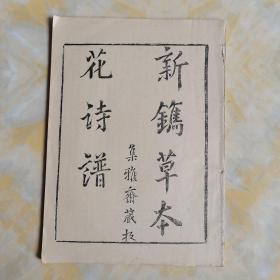 新鐫草本
花詩譜
集雅齋藏板